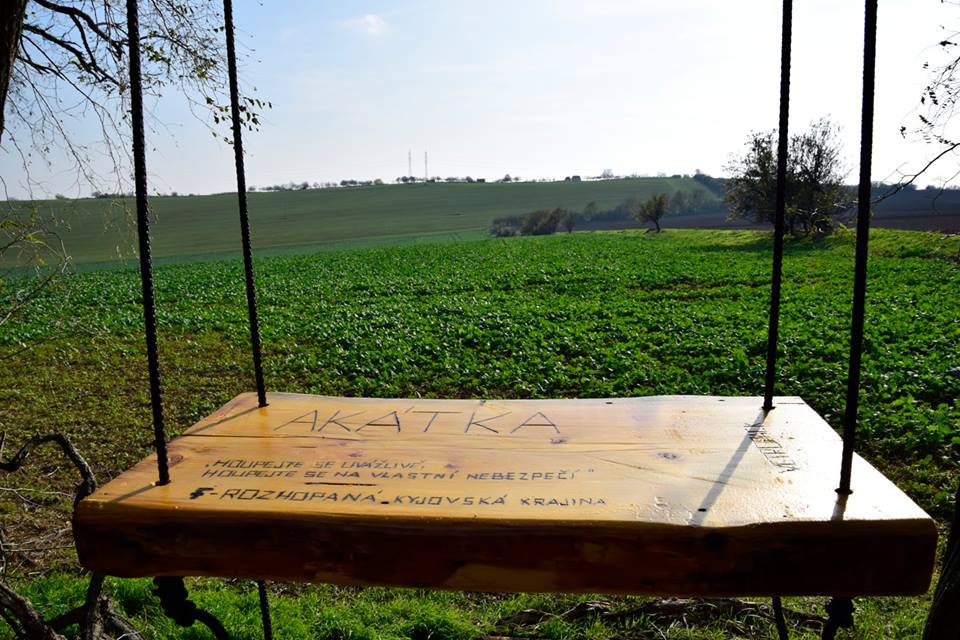 AKÁTKA
„HOUPEJTE SE UVÁŽLIVĚ,
HOUPEJTE SE NA VLASTNÍ NEBEZPEČÍ“
F-ROZHOPANÁ KYJOVSKÁ KRAJINA